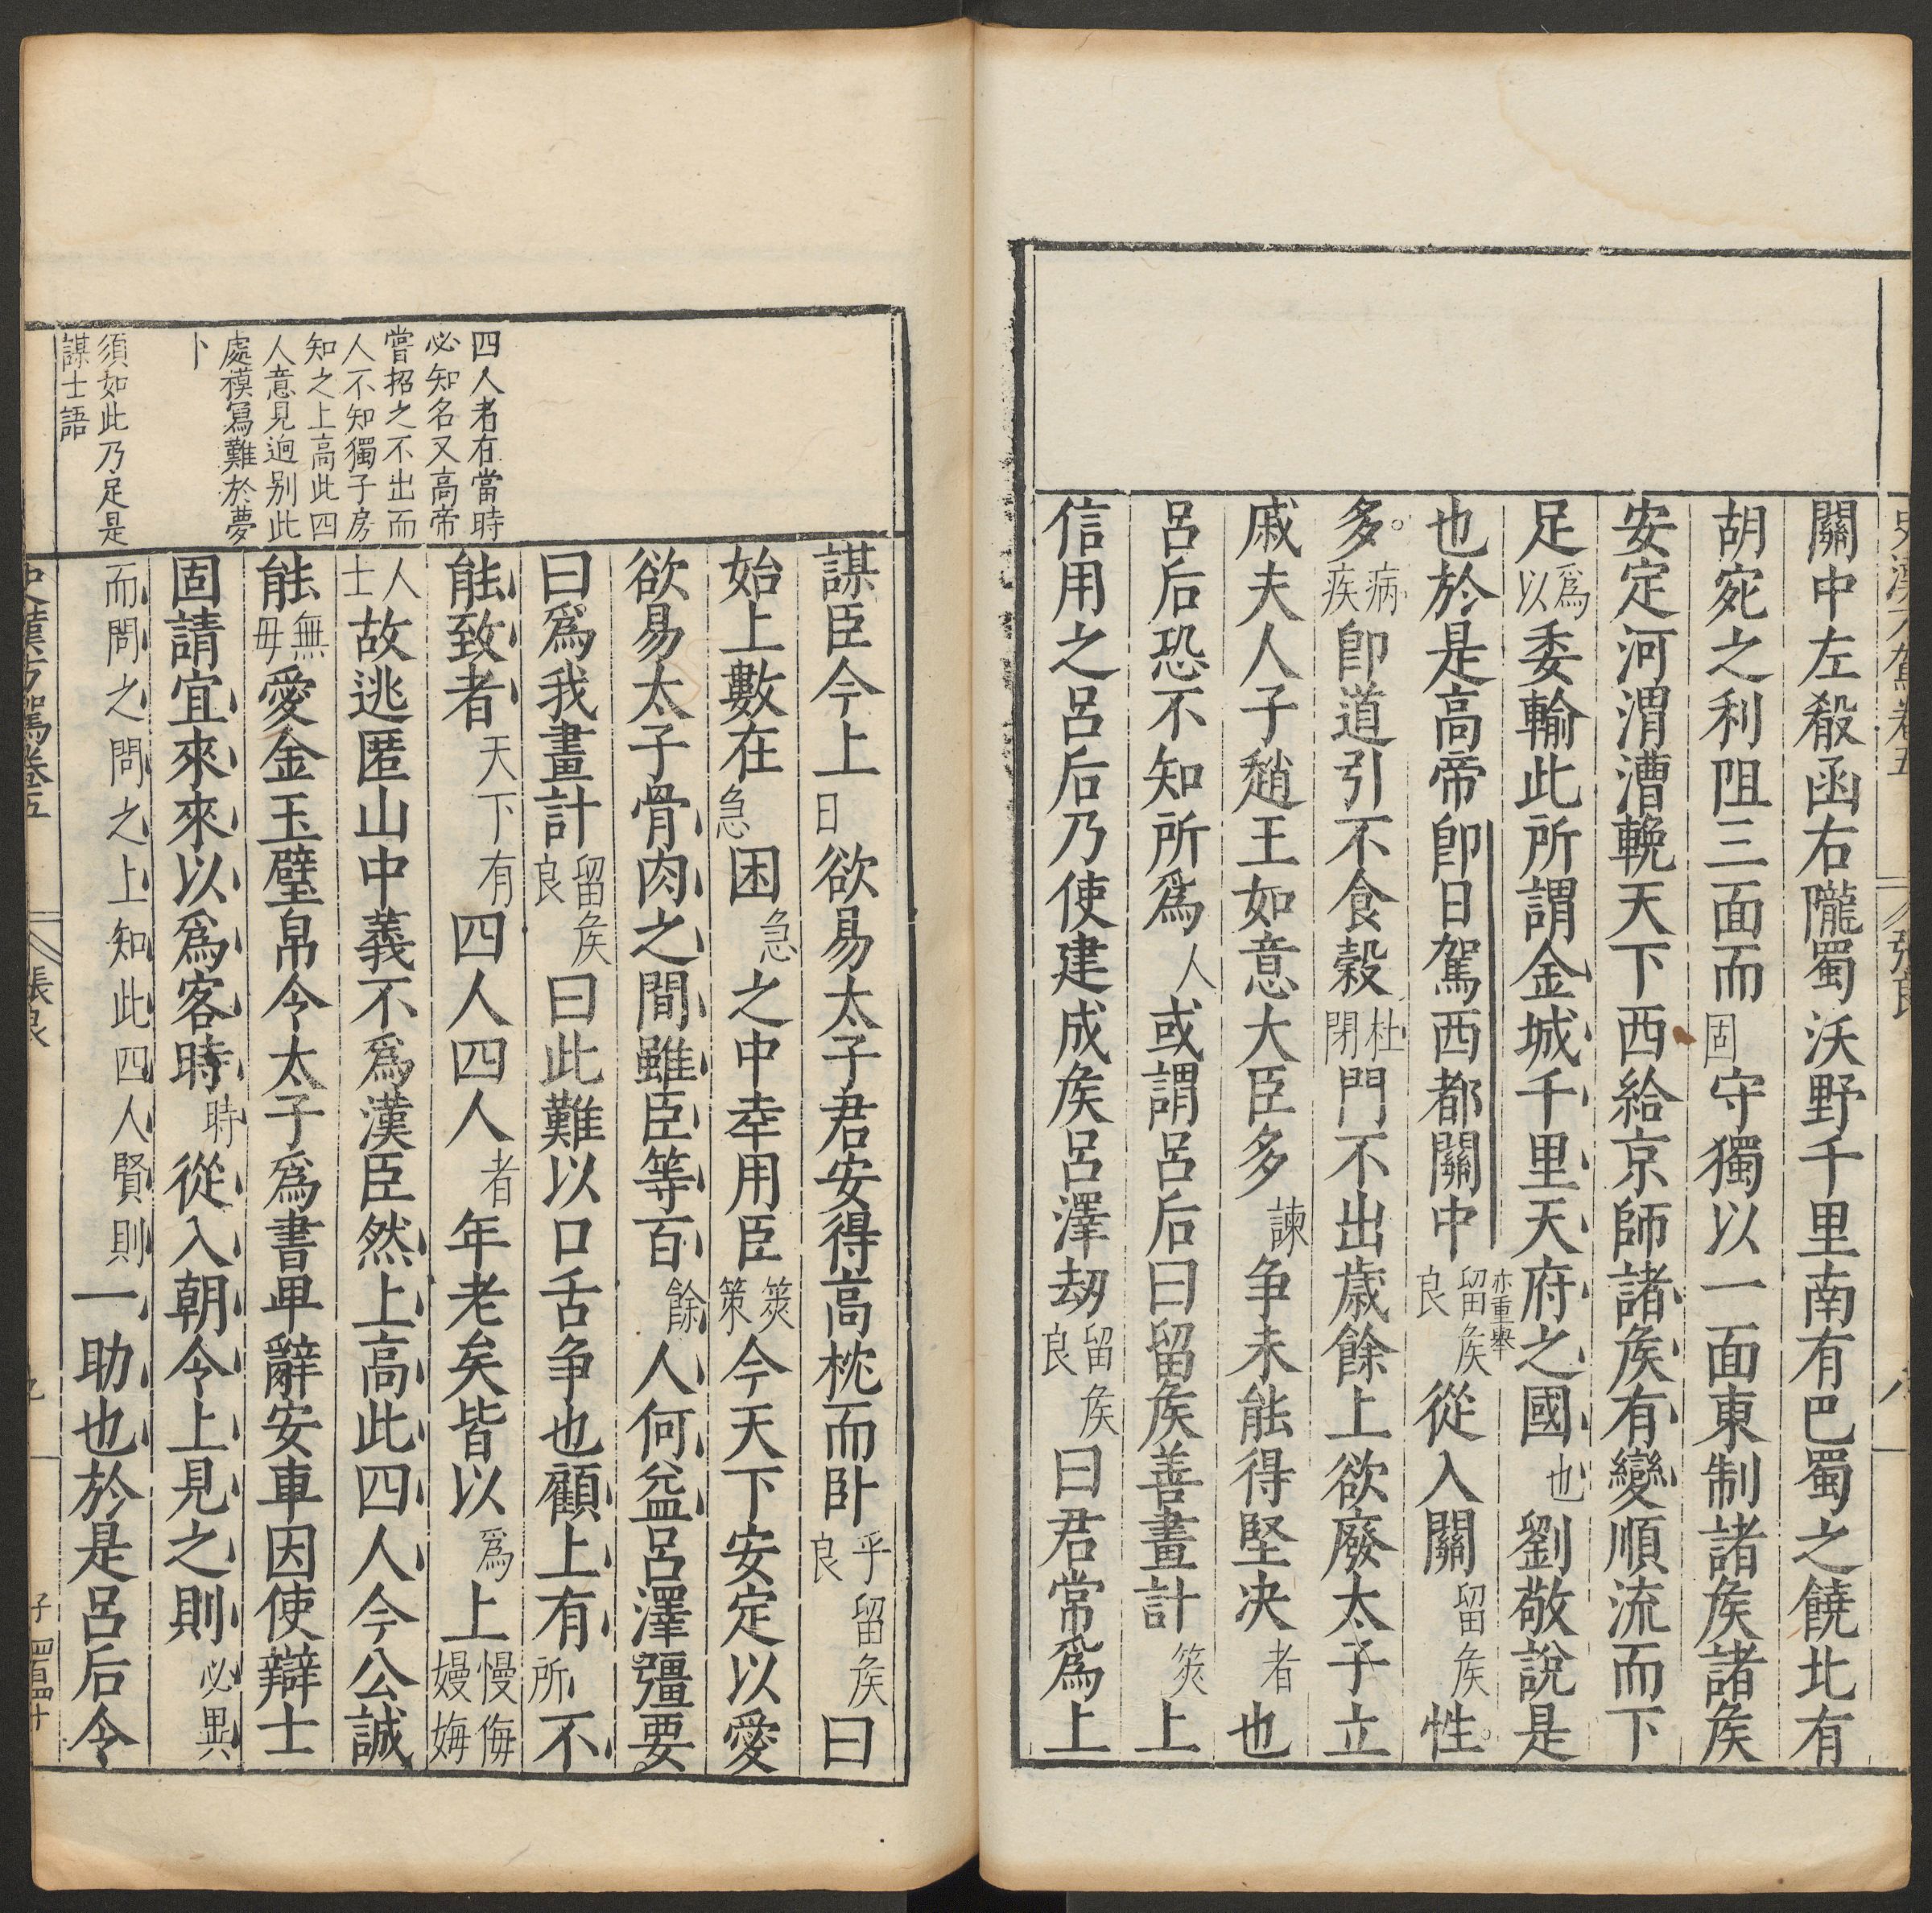 關中左殽函右隴蜀沃野千里南有巴蜀之饒北有
胡宛之利阻三面而固守獨以一面東制諸矦諸矦
安定河渭漕輓天下西給京師諸矦有變順流而下
足爲以委輸此所謂金城千里天府之國也劉敬說是
也於是高帝卽日駕西都關中留矦良從入關留矦性
亦重舉
多病疾卽道引不食穀杜閉門不出歳餘上欲廢太子立
戚夫人子趙王如意大臣多諫争未能得堅决者也
呂后恐不知所爲人或謂呂后曰留矦善畫計筴上
信用之呂后乃使建成矦呂澤劫留矦良曰君常爲上
四人者在當時
必知名又高帝
嘗招之不出而
人不知獨子房
知之上高此四
人意見逈别此
處模寫難於夢
卜
須如此乃足是
謀士語
謀臣今上日欲易太子君安得高枕而卧乎良留矦曰
始上數在急困急之中幸用臣筴策今天下安定以愛
欲易太子骨肉之間雖臣等百餘人何益呂澤彊要
曰爲我畫計留矦良曰此難以口舌争也顧上有所不
能致者天下有四人四人者年老矣皆以爲上慢侮嫚娒
人士故逃匿山中義不爲漢臣然上高此四人今公誠
能無毋愛金玉璧帛令太子爲書卑辭安車因使辯士
固請宜來來以爲客時時從入朝令上見之則必異
而問之問之上知此四人賢則一助也於是呂后令
張良